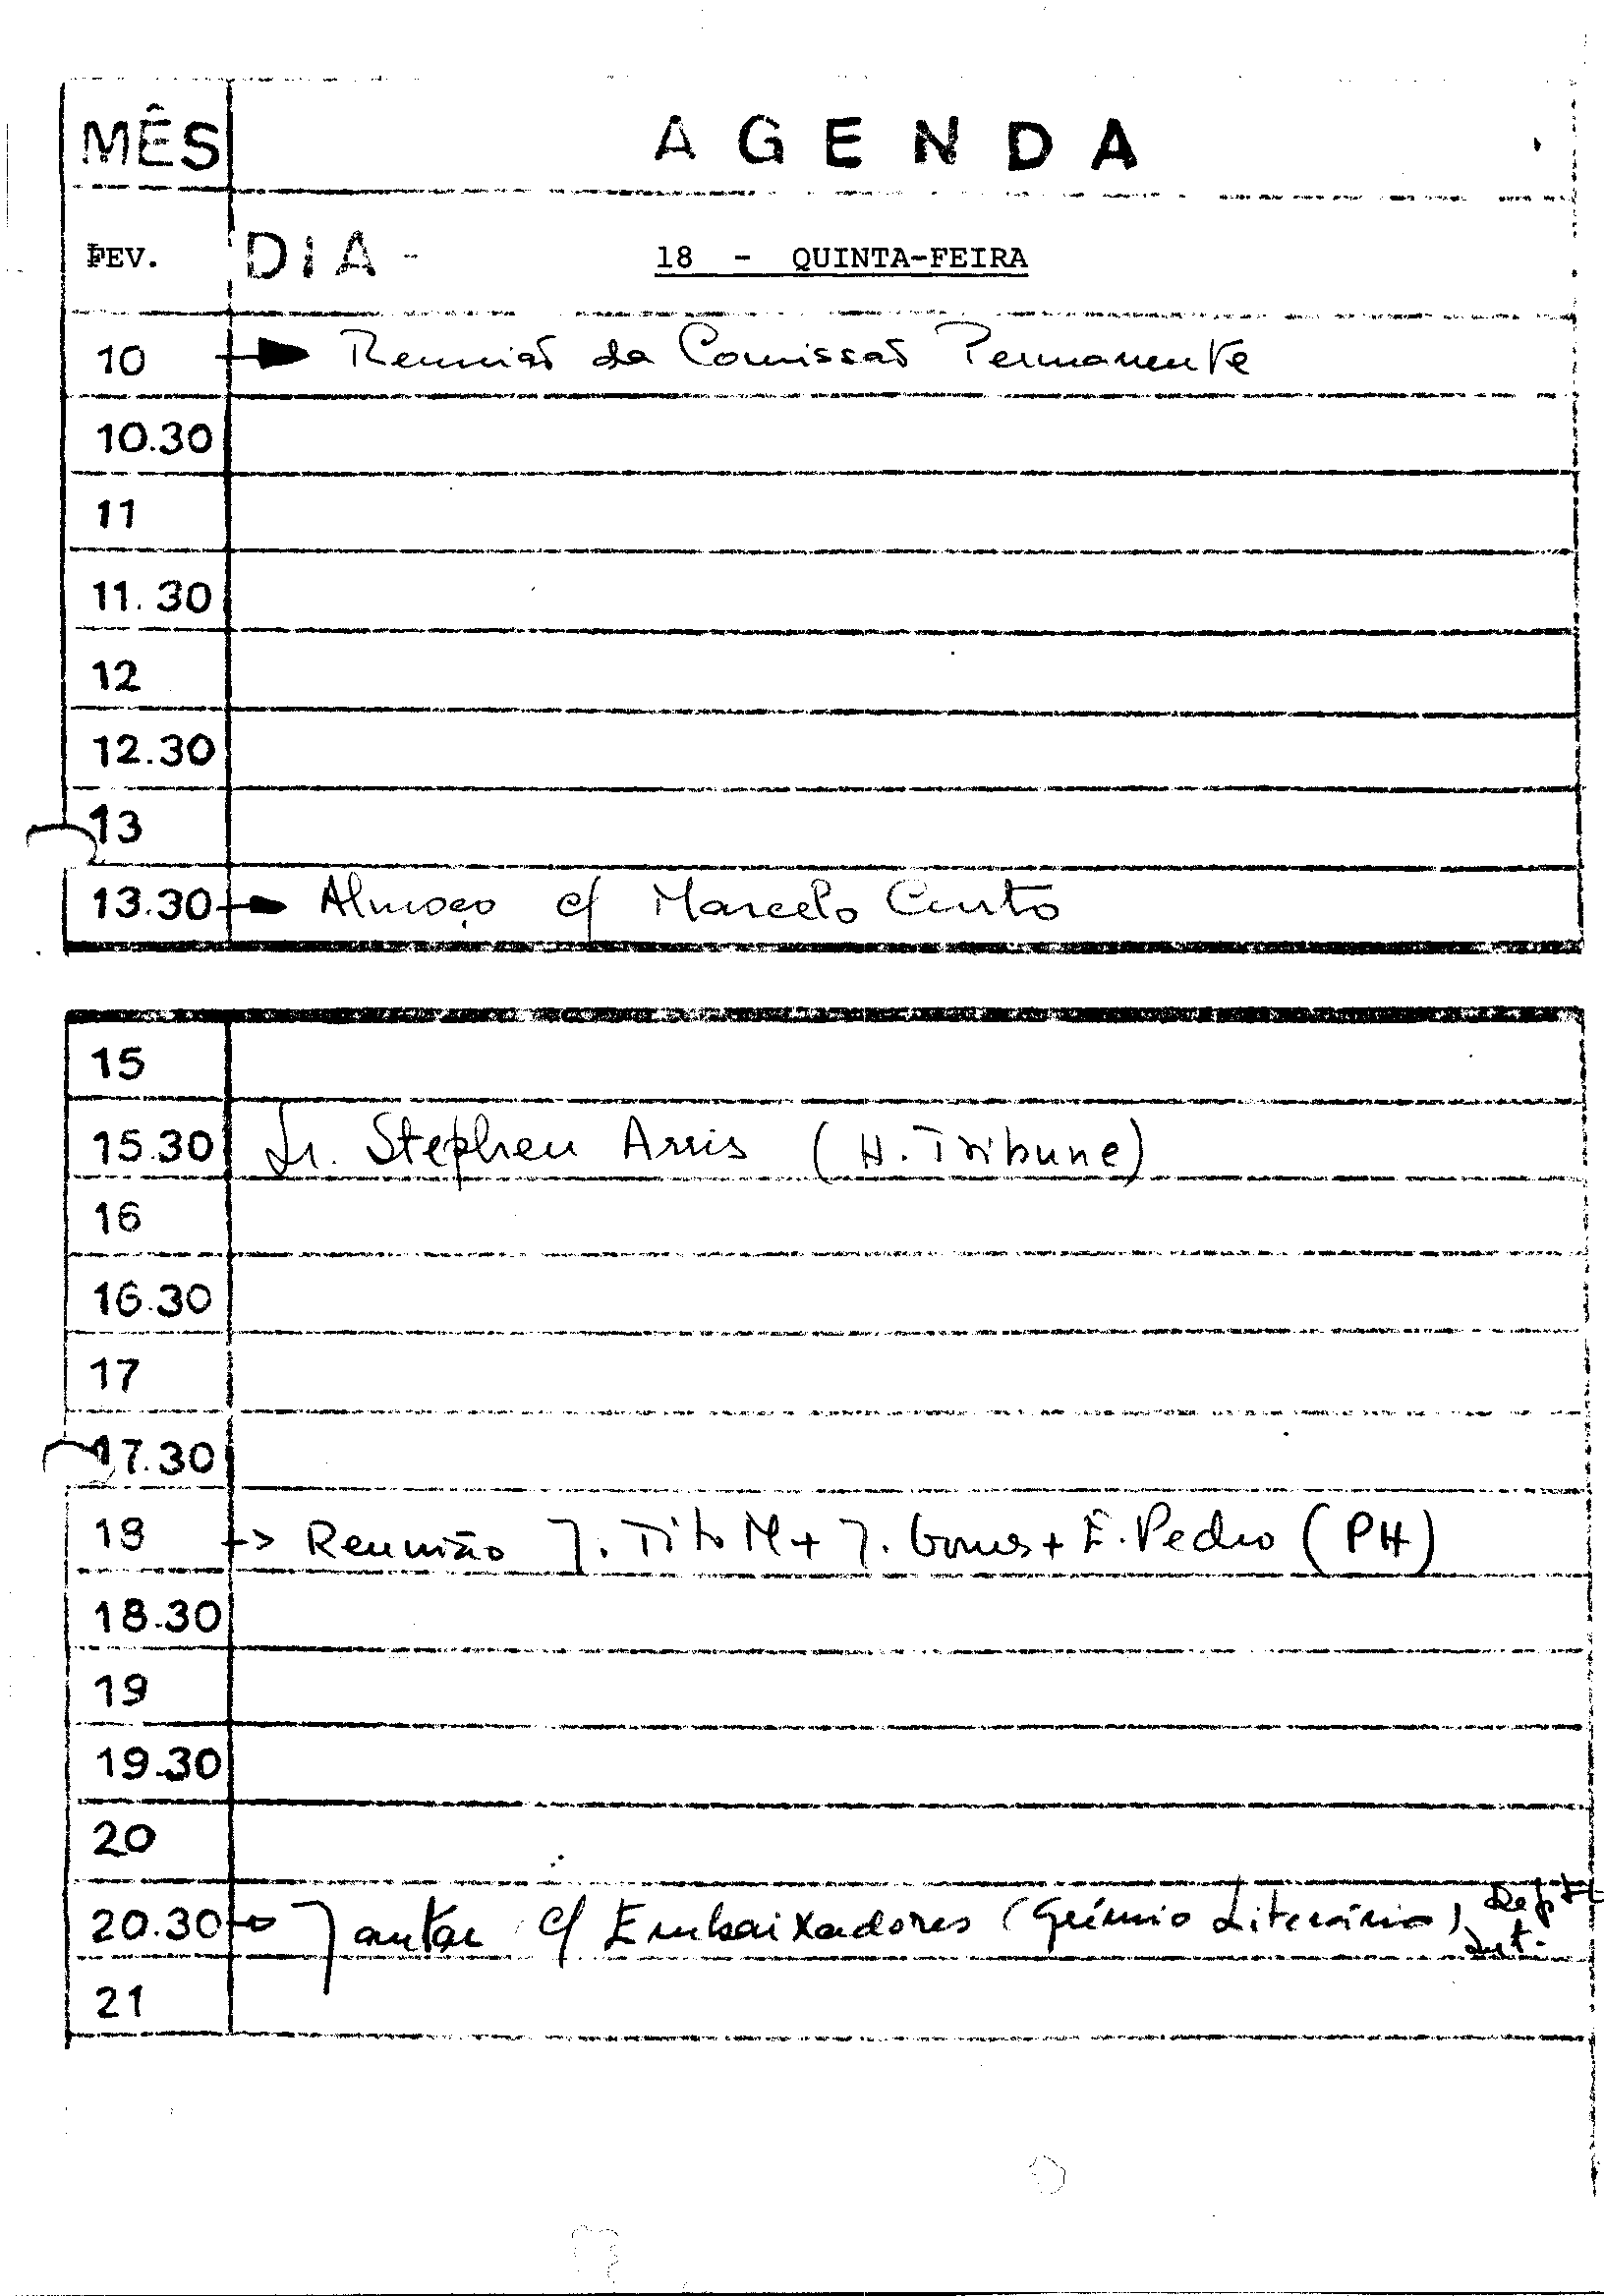 MÊS AGENDA
FEV. DIA - 18 - QUINTA-FEIRA
10 Reunião da Comissão Permanente
10.30
11
11.30
12
12.30
13
13.30 Almoço c/ Marcelo Curto
15
15.30 Sr. Stephen Arris (H. Tribune)
16
16.30
17
17.30
18 -> Reunião J. Tito M + J. Gomes + E. Pedro (PH)
18.30
19
19.30
20
20.30 Jantar c/ Embaixadores (Grémio Literário)
21